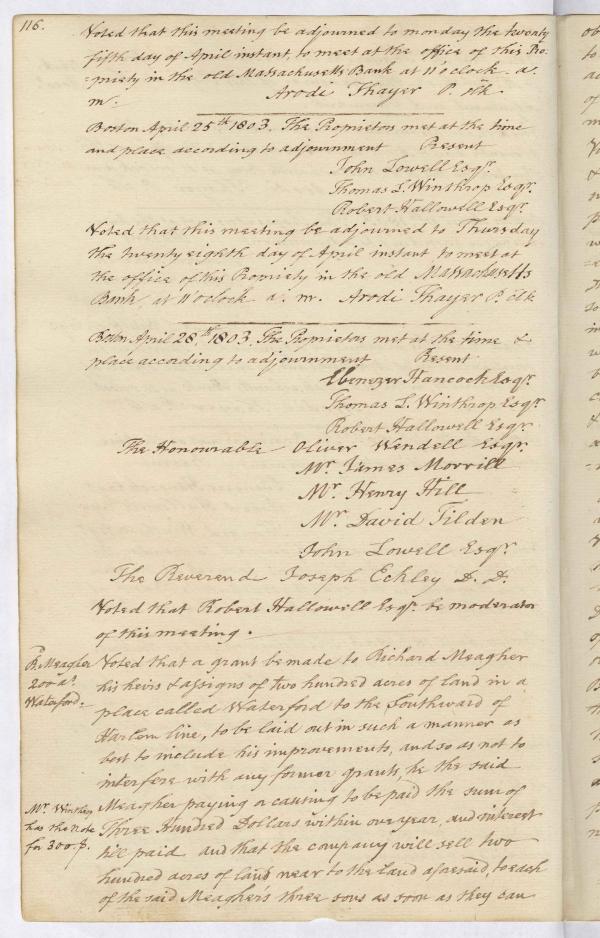 116.
Voted that this meeting be adjourned to monday the twenty
fifth day of April instant, to meet at the office of this Pro-
=priety in the old Massachusetts Bank at 11 o'clock a.
m. Arodi Thayer P. clk.
Boston April 25th 1803. The Proprietors met at the time
and place according to adjournment Present
John Lowell Esqr.
Thomas L. Winthrop Esqr.
Robert Hallowell Esqr.
Voted that this meeting be adjourned to Thursday
the twenty eighth day of April instant to meet at
the office of this Propriety in the old Massachusetts
Bank at 11 o'clock a. m. Arodi Thayer P. clk
Boston April 28th 1803. The Proprietors met at the time &
place according to adjournment Present
Ebenezer Hancock Esqr.
Thomas L. Winthrop Esqr.
Robert Hallowell Esqr.
The Honourable Oliver Wendell Esqr.
Mr. James Morrill
Mr. Henry Hill
Mr. David Tilden
John Lowell Esqr.
The Reverend Joseph Eckley D. D.
Voted that Robert Hallowell Esqr. be moderator
of this meeting.
R. Meagher
200 as.
Waterford.
Voted that a grant be made to Richard Meagher
his heirs & assigns of two hundred acres of land in a
place called Waterford to the Southward of
Harlem line, to be laid out in such a manner as
best to include his improvements, and so as not to
interfere with any former grants, he the said
Meagher paying or causing to be paid the sum of
Mr. Winthrop
has the note
for 300 $.
Three Hundred Dollars within one year, and interest
till paid and that the company will sell two
hundred acres of land near to the land aforesaid, to each
of the said Meagher's three sons as soon as they can